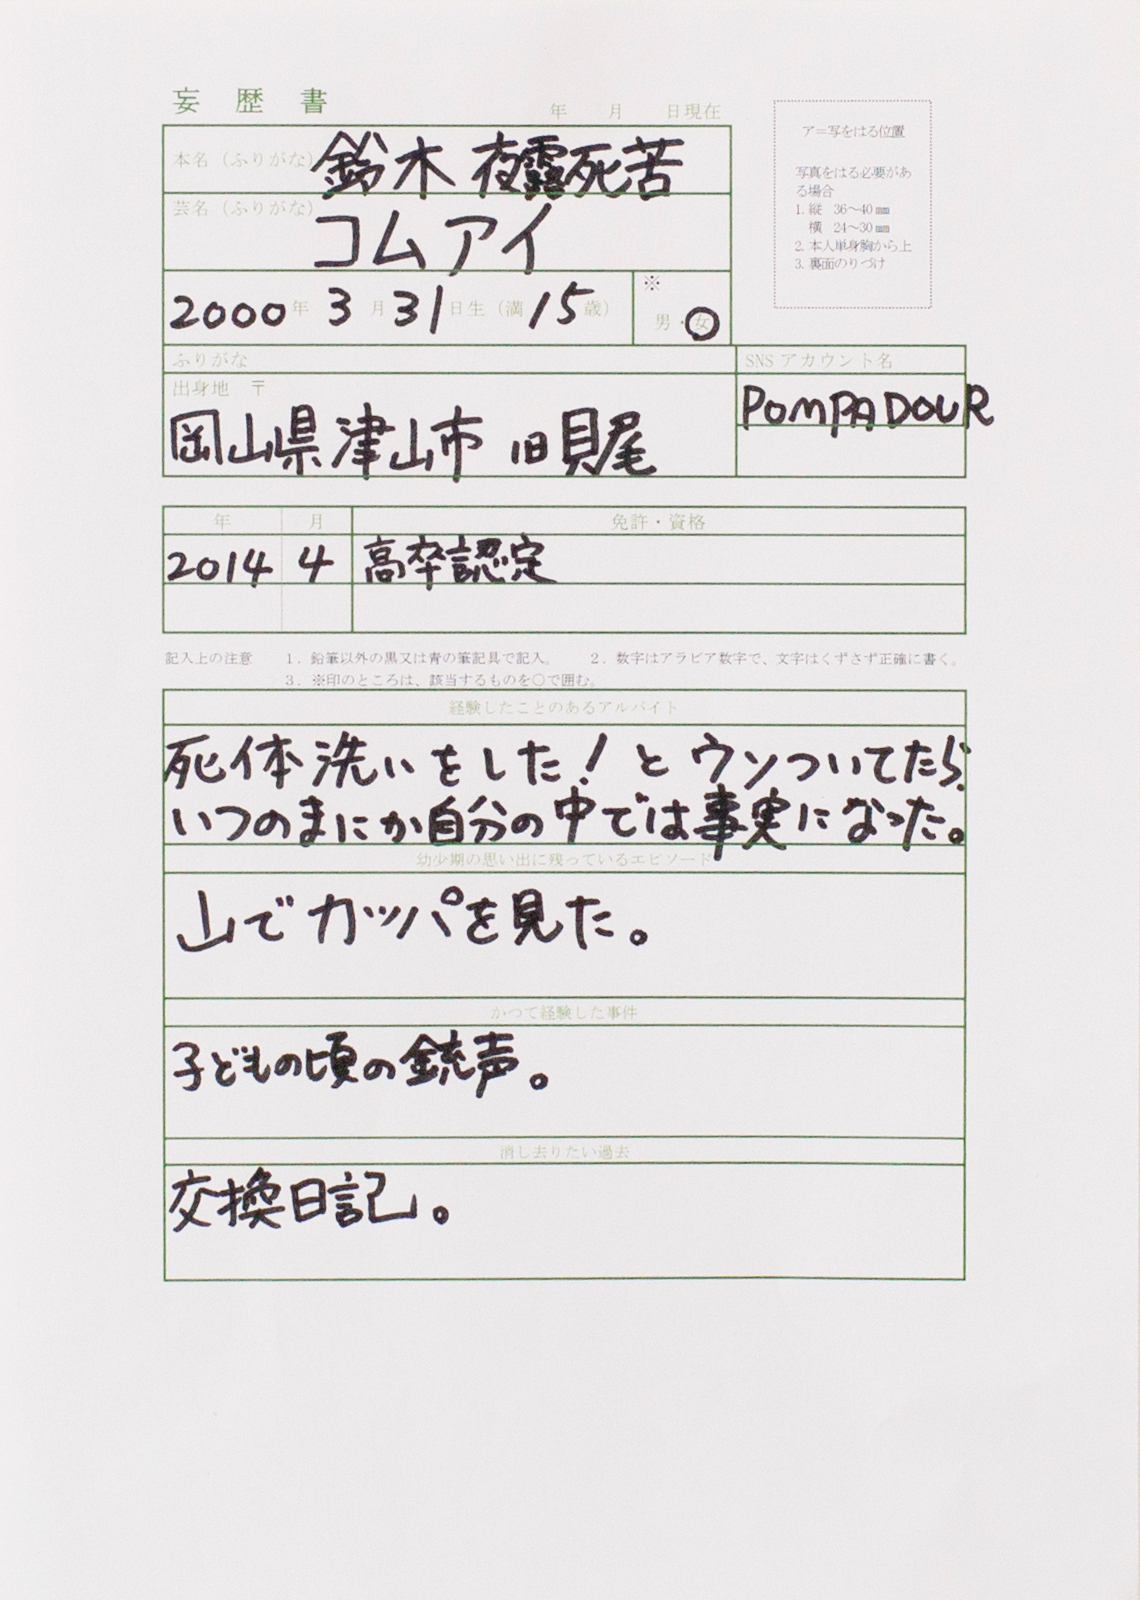 妄歴書
年 月 日現在
本名（ふりがな） 鈴木 夜露死苦
芸名（ふりがな） コムアイ
2000年 3月 31日生（満 15歳）
※
男・女
ア＝写をはる位置
写真をはる必要があ
る場合
1. 縦 36～40㎜
横 24～30㎜
2. 本人単身胸から上
3. 裏面のりづけ
ふりがな
出身地 〒
岡山県津山市 旧貝尾
SNS アカウント名
POMPADOUR
年 月 免許・資格
2014 4 高卒認定
記入上の注意 1．鉛筆以外の黒又は青の筆記具で記入。 2．数字はアラビア数字で、文字はくずさず正確に書く。
3．※印のところは、該当するものを○で囲む。
経験したことのあるアルバイト
死体洗いをした！とウソついてたら、
いつのまにか自分の中では事実になった。
幼少期の思い出に残っているエピソード
山でカッパを見た。
かつて経験した事件
子どもの頃の銃声。
消し去りたい過去
交換日記。